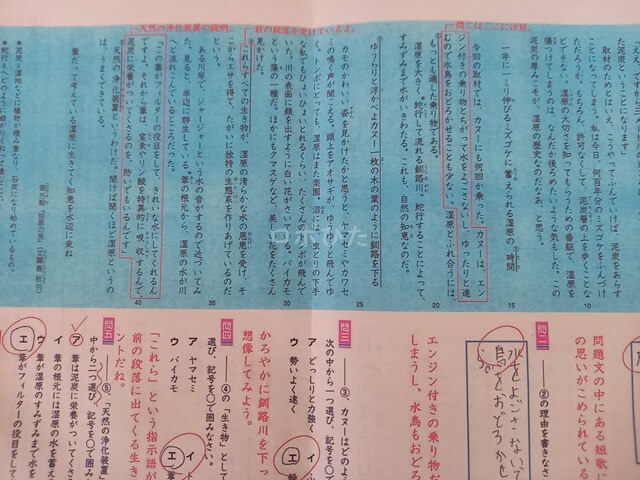 問二はここに注目。
前の段落を受けているよ。
天然の浄化装置の説明。
えば、すべてが三大
た泥炭ということになります」
取材のためとはいえ、こうやってふんでいけば、泥炭
ことにもなってしまう。私は今日、何百年分のミズゴケをふんづけ
ただろうか。もちろん、許可なくして、泥炭層の上を歩くことな
どできない。湿原の大切さを知ってもらうための番組で、湿原を
傷つけてしまうのは、なんだか後ろめたい気もしました。この
泥炭の厚みこそが、湿原の歴史なのだなあ、と思う。
一年に一ミリ伸びるミズゴケに蓄えられる湿原の①時間
15
今回の取材では、カヌーにも何回か乗った。カヌーは、エン
ジン付きの乗り物とちがって水をよごさないし、ゆったりと進
むので水鳥をおどろかせることも少ない。湿原とふれ合うには
もっとも適した乗り物である。
20
湿原を大きく、蛇行して流れる釧路川。蛇行することによって、
すみずみまで水がいきわたる。これも、自然の知恵なのだ。
③ゆうらりと浮かべよカヌー一枚の木の葉のように釧路を下る
25
カモのかわいい姿を見かけたかと思うと、ヤマセミやカワセ
ミの鳴く声が聞こえる。頭上をアオサギが、ゆったりと飛んでゆ
く。トンボにとっても、湿原はまた楽園。沼には、虫とりの下手
な私でもひょいひょいとれるくらい、たくさんのトンボが飛んで
いた。川の表面に顔を出すように白い花がさいてる。バイカモ
30
という藻の一種だ。ほかにもクマスゲなど、美しい花をたくさん
見かけた。
④これらすべての生き物が、湿原の清らかな水の恩恵を受け、そ
こからエサを得て、たがいに独特の生態系を作りあげているのだ
という。
35
ある川岸で、ジャージャーという水の音がするので近づいてみ
た。見ると、岸辺に群生している葦の根元から、湿原の水が川
へと流れこんでいるところだった。
「この葦がフィルターの役目をして、きれいな水にしてくれるん
ですよ。それから葦は、窒素やリン酸を特異的に吸収するんで、
40
泥炭に栄養がついてくるのを、防いでもいるんです」
⑤天然の浄化装置、というわけだ。聞けば聞くほど湿原というの
は、うまくできている。
葦だって考えている湿原に生きてく知恵を水辺に束ね
問題文の中にある短歌に
の思いがこめられている
問二 ――②の理由を書きなさ
水をよごさないで
鳥をおどろかせ
エンジン付きの乗り物だ
しまうし、水鳥もおどろ
問三 ――③、カヌーはどのよ
次の中から一つ選び、記号を
ア どっしりと力強く
ウ 勢いよく速く
エ
かろやかに釧路川を下っ
想像してみよう。
問四 ――④の「生き物」として
選び、記号を○で囲みなさい。
ア ヤマセミ
ウ バイカモ
エ
「これら」という指示語が
前の段落に出てくる生き
ントだね。
問五 ――⑤、「天然の浄化装置」
中から二つ選び、記号を○で囲み
ア 葦は泥炭に栄養がついてくる
イ 葦の根元には湿原の水を蓄え
ウ 葦が湿原のすみずみまで水を
エ 葦がフィルターの役目をして